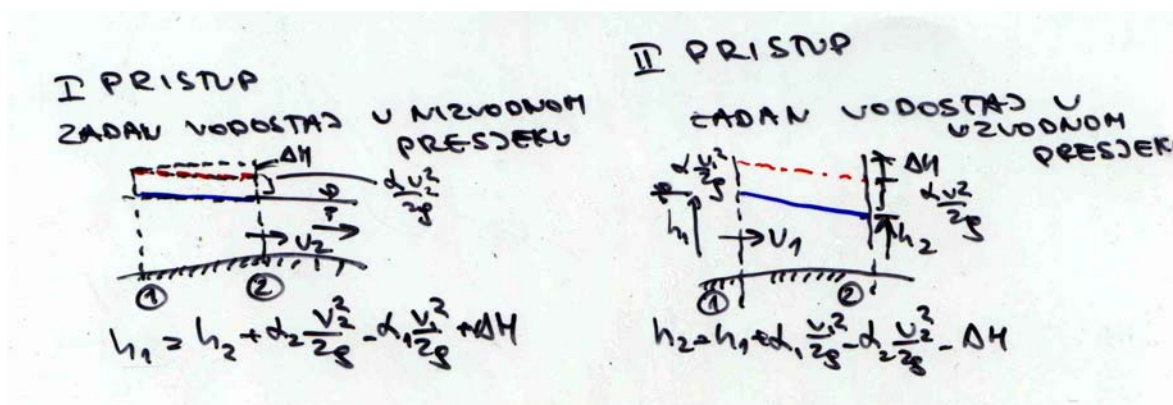 I PRISTUP
ZADAN VODOSTAJ U NIZVODNOM
PRESJEKU
ΔH
α₂ v₂²/2g
v₂
① ②
h₁ = h₂ + α₂ v₂²/2g - α₁ v₁²/2g + ΔH
II PRISTUP
ZADAN VODOSTAJ U
UZVODNOM
PRESJEKU
α v₁²/2g
ΔH
α v²/2g
h₁
v₁
h₂
① ②
h₂ = h₁ + α₁ v₁²/2g - α₂ v₂²/2g - ΔH